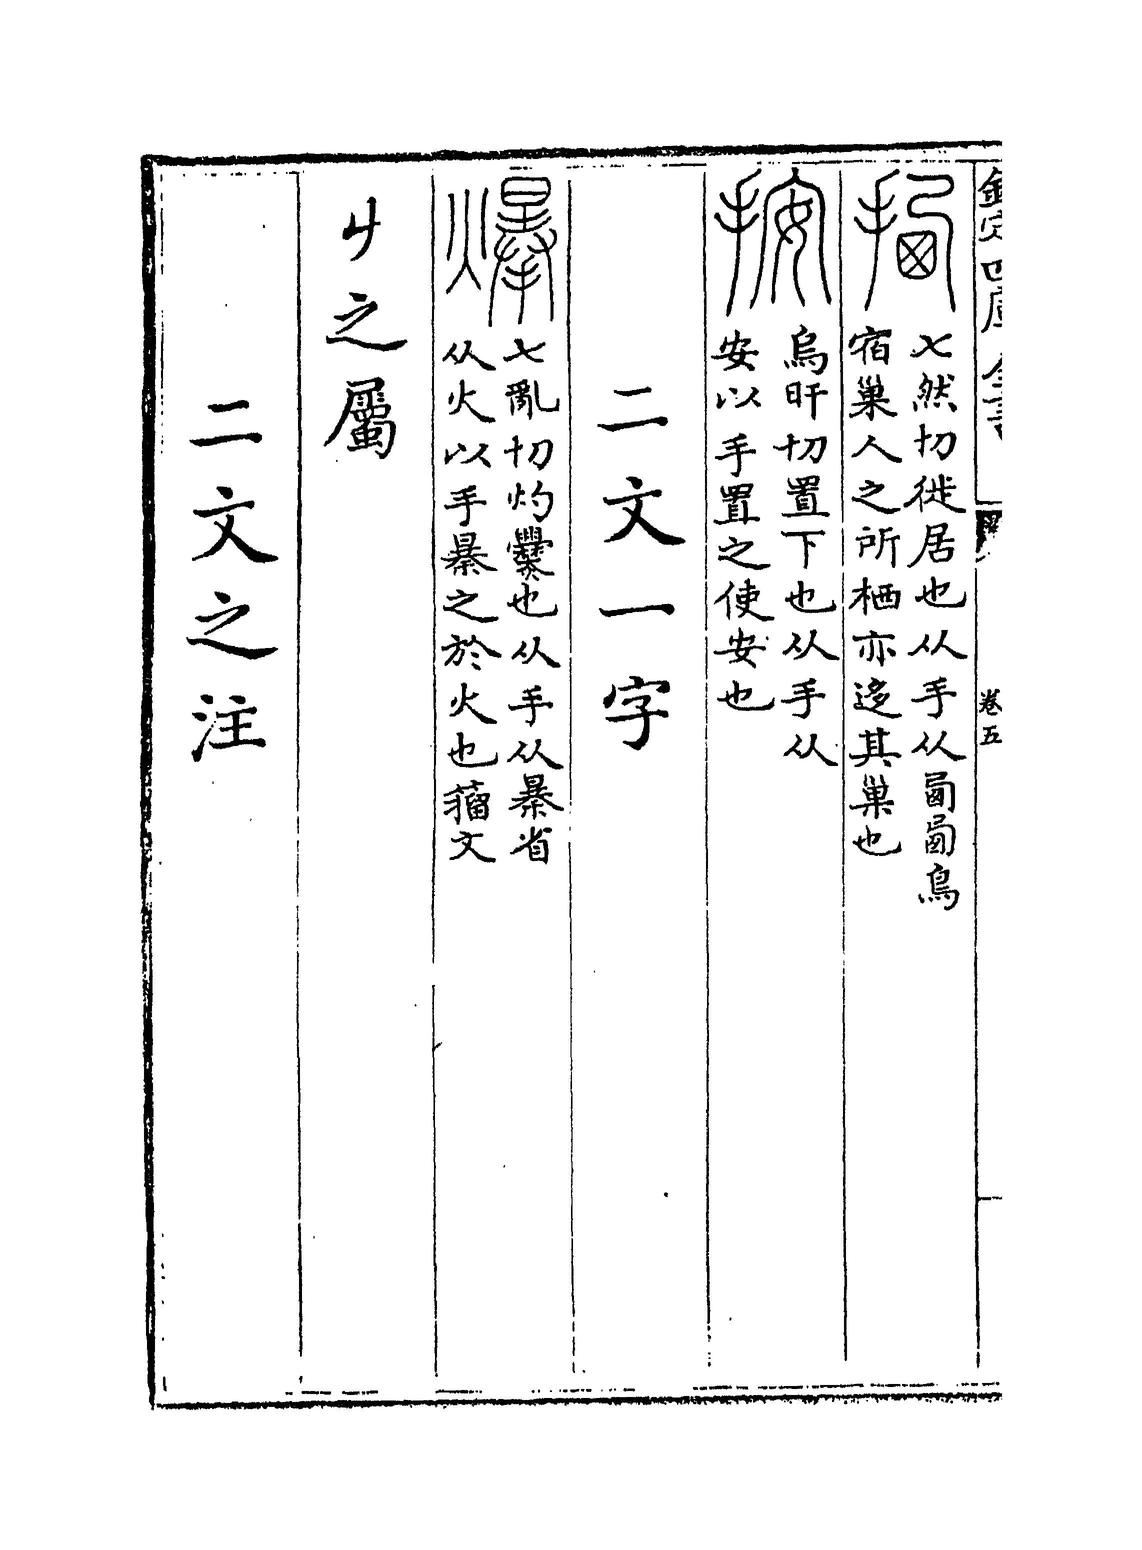 欽定四庫全書
卷五
七然切徙居也从手从𠧪𠧪鳥
宿巢人之所栖亦迻其巢也
按
烏旰切置下也从手从
安以手置之使安也
二文一字
七亂切灼爨也从手从㬥省
从火以手㬥之於火也籀文
廾之屬
二文之注